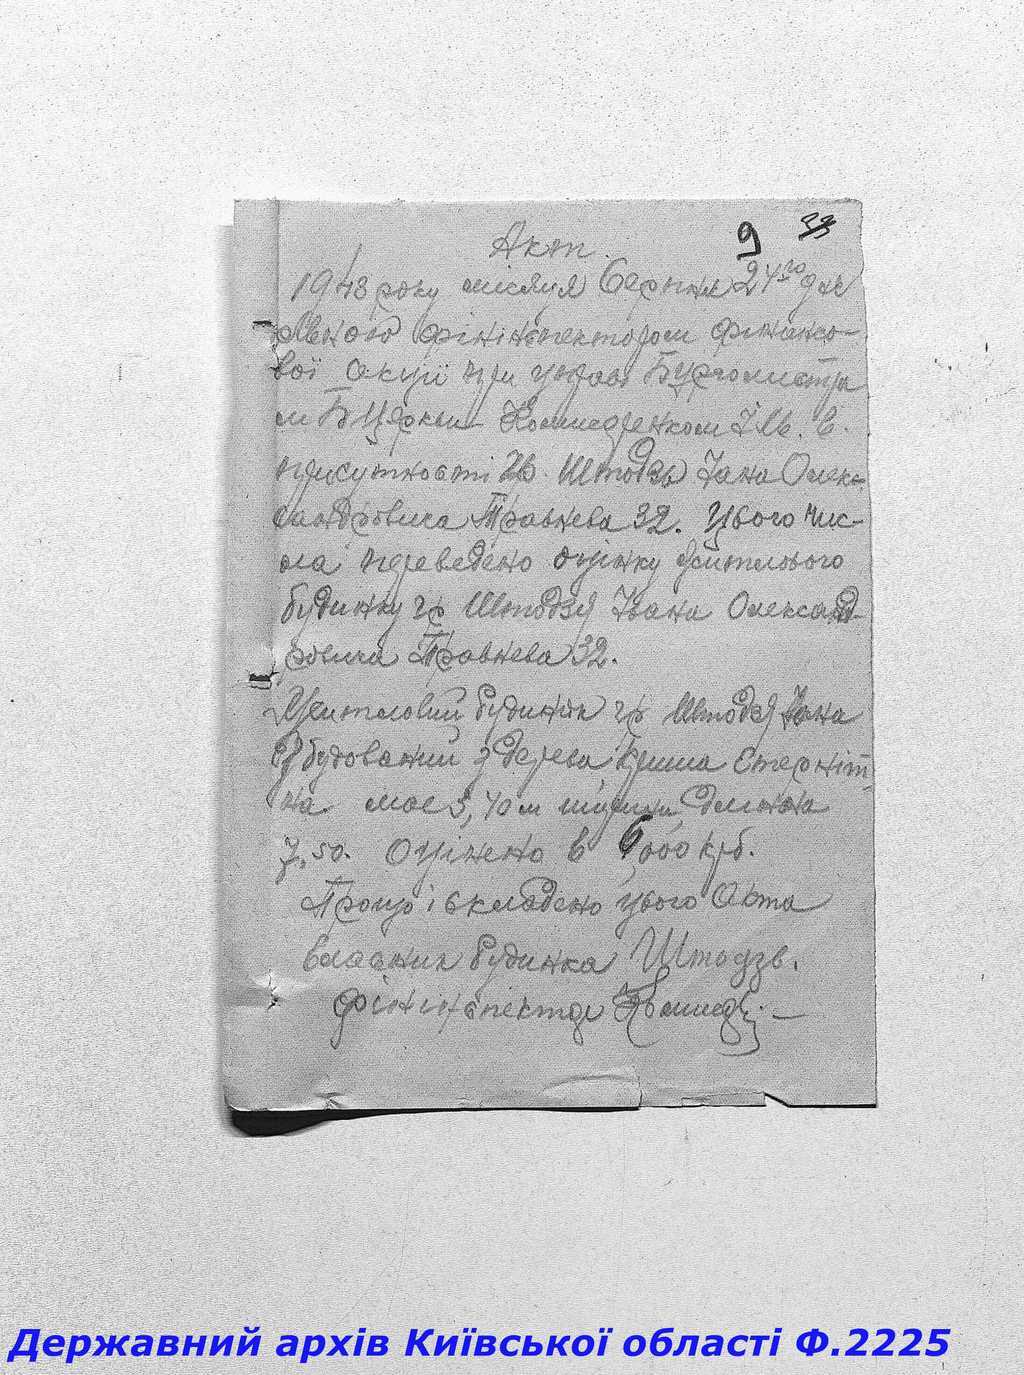 9 33
Акт.
1943 року місяця Серпня 24го дня
Мною фінінспектором фінансо-
вої секції при управі Бургомістра
м Б Церкви
присутності гр. Штодзя Івана Олек-
сандровича Травнева 32. Цього чис-
ла переведено оцінку житлового
будинку гр Штодзя Івана Олександ-
ровича Травнева 32.
Житловий будинок гр Штодзя Івана
збудований з дерева Криша Етерніт
на має 5,40 м ширини Длиною
7,50. Оцінено в 6000 крб.
Прощо і складено цього Акта
власник будинка Штодзя.
фінінспектор
Державний архів Київської області Ф.2225